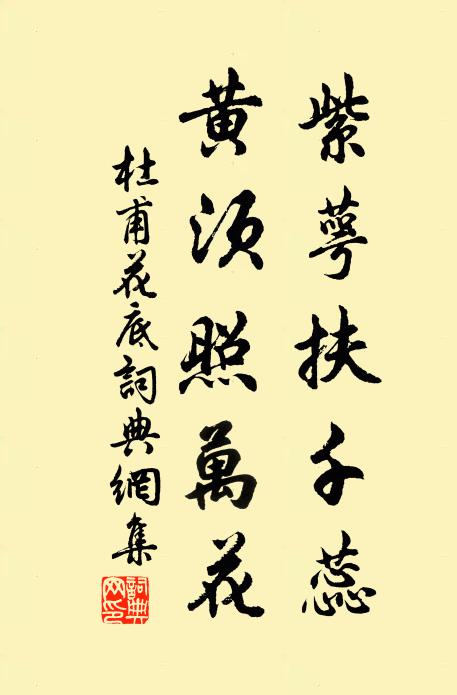 紫萼扶千蕊
黄须照萬花
杜甫花底詞典網集
詞典网印